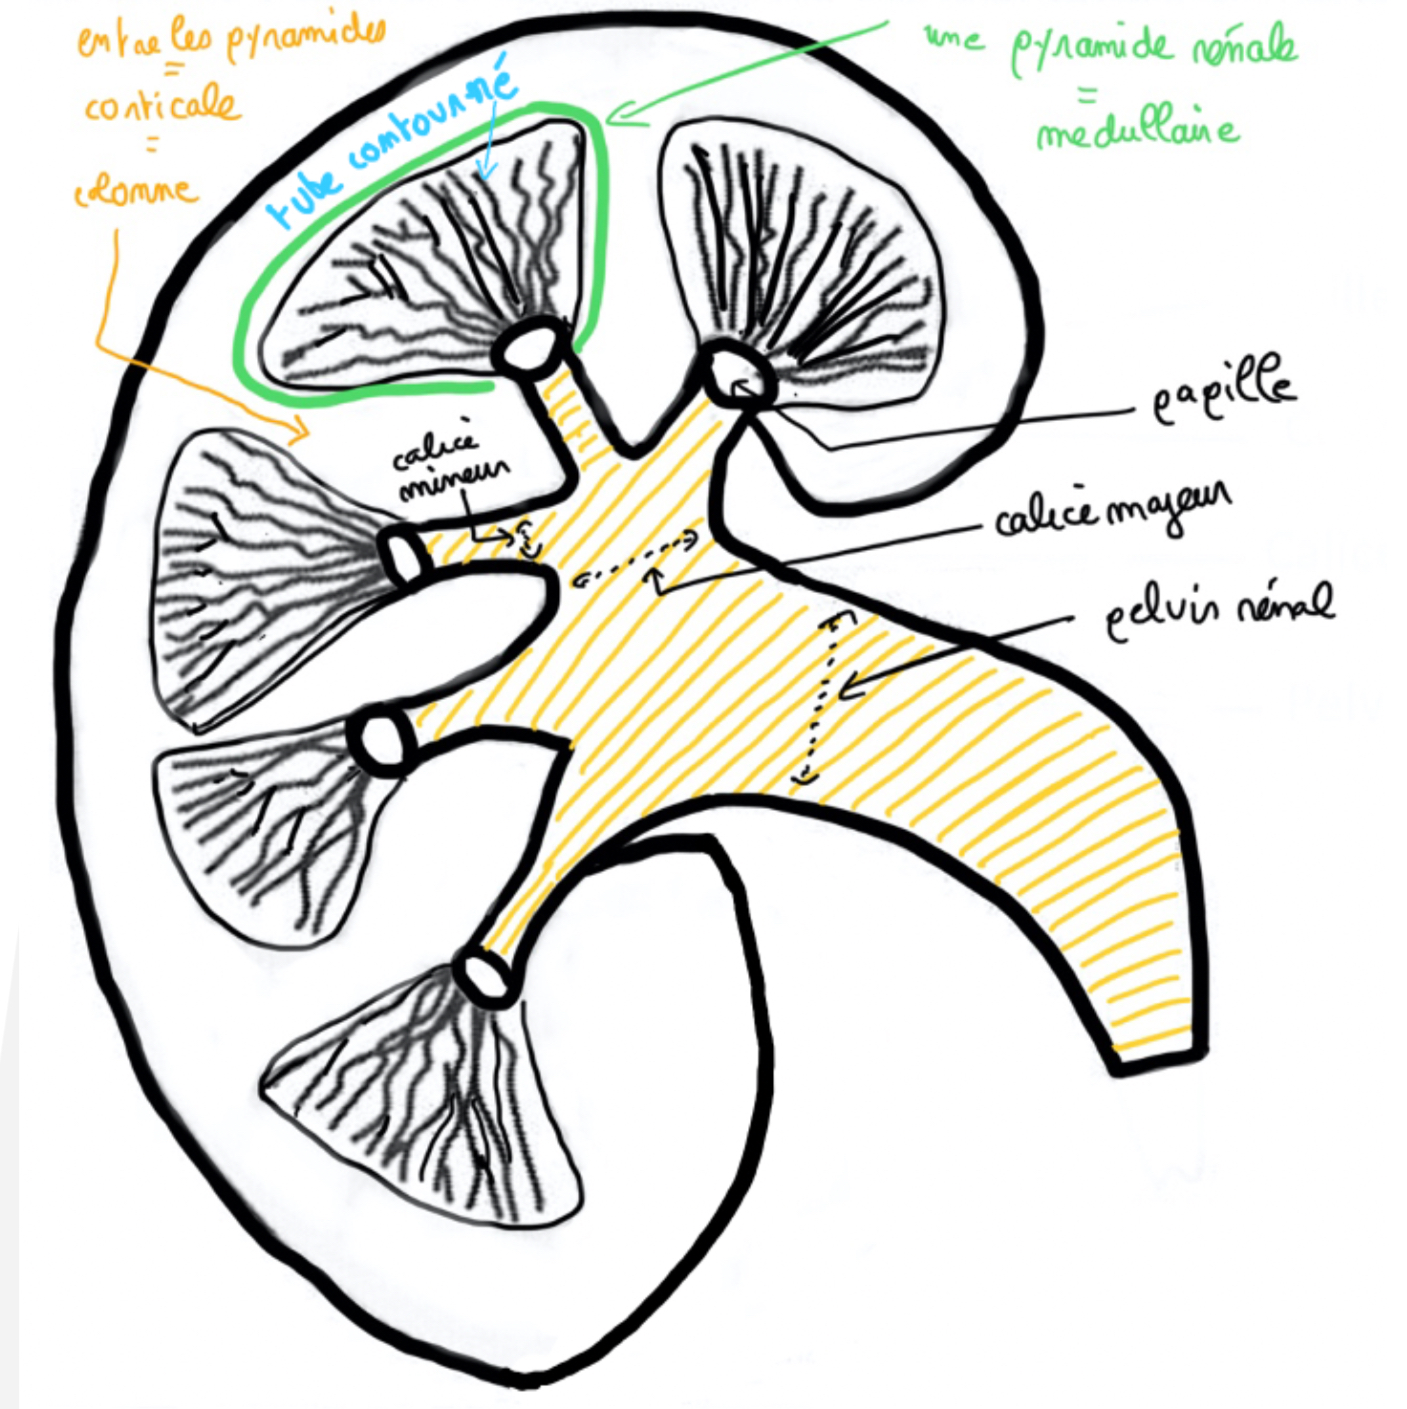 entre les pyramides
=
corticale
=
colonne
tube contourné
une pyramide rénale
=
medullaire
calice
mineur
papille
calice majeur
pelvis rénal